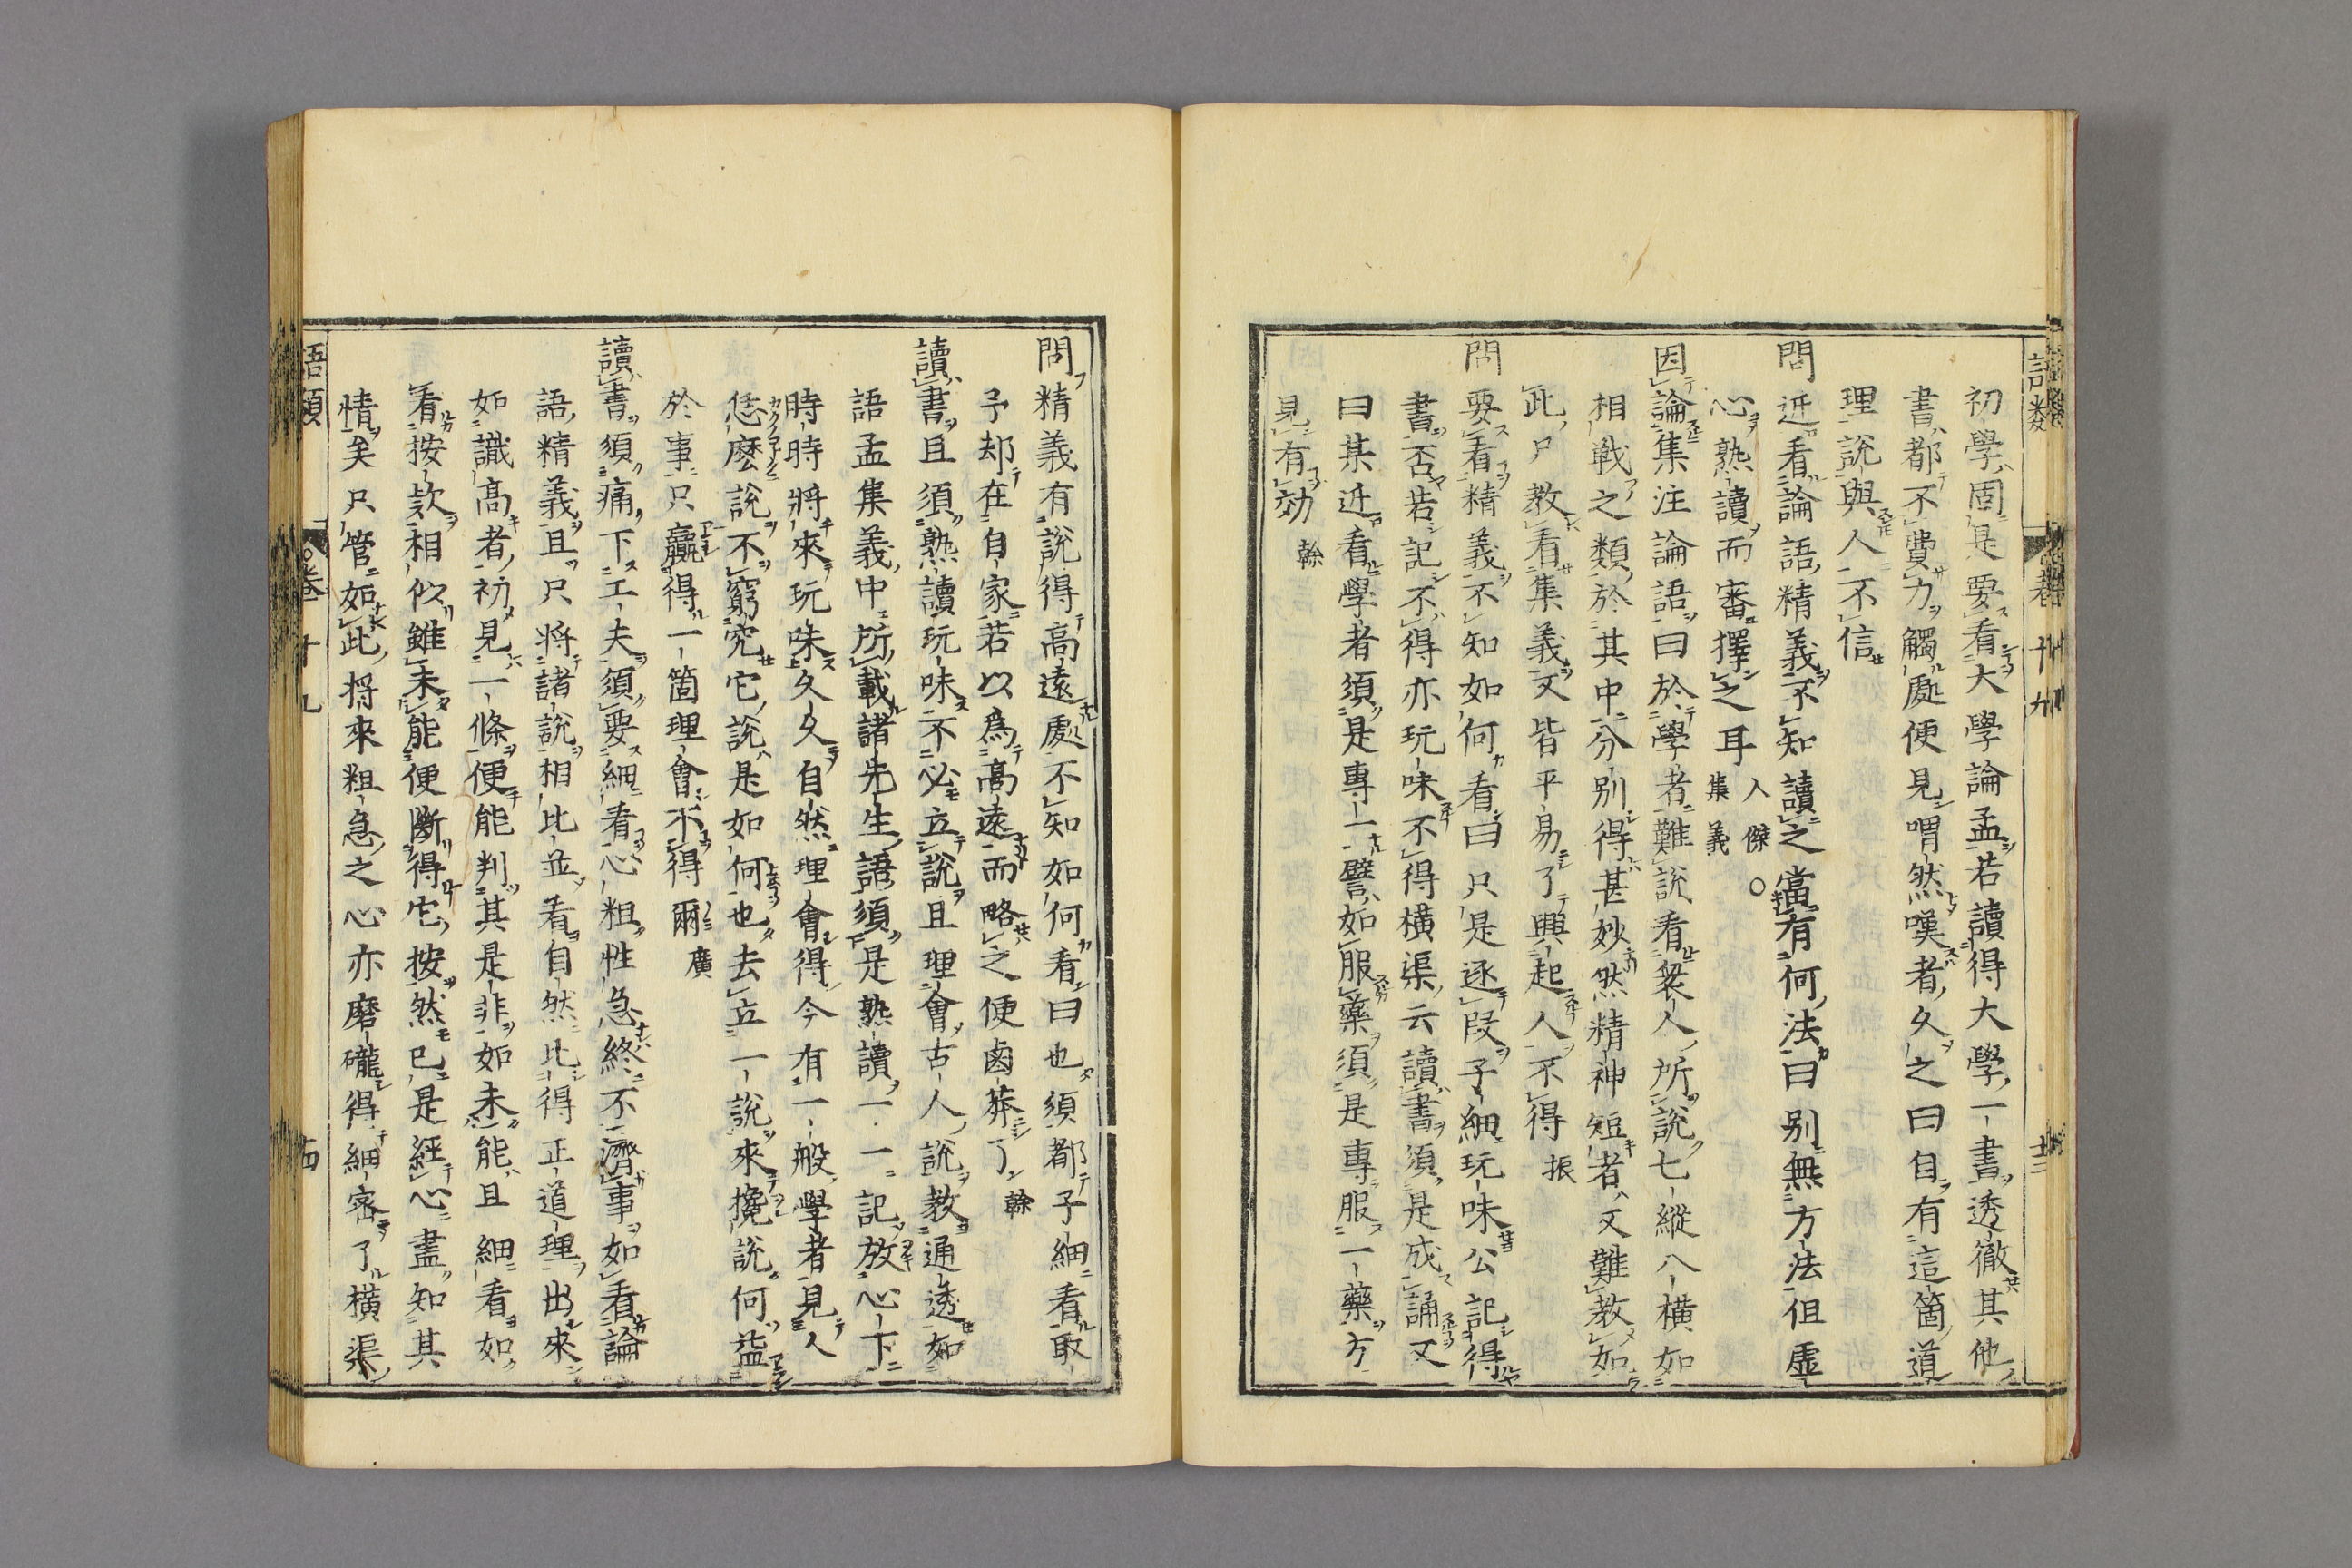 初學固是要看大學論孟若讀得大學一書透徹其他
書都不費力觸處便見喟然嘆者久之曰自有這箇道
理說與人不信
問近看論語精義不知讀之當有何法曰別無方法但虛
心熟讀而審擇之耳 人傑〇集義
因論集注論語曰於學者難說看衆人所說七縱八橫如
相戰之類於其中分別得甚妙然精神短者又難教如
此只教看集義又皆平易了興起人不得 振
問要看精義不知如何看曰只是逐段子細玩味公記得
書否若記不得亦玩味不得橫渠云讀書須是成誦又
曰某近看學者須是專一譬如服藥須是專服一藥方
見有効 榦
問精義有說得高遠處不知如何看曰也須都子細看取
予却在自家若以爲高遠而略之便鹵莽了 榦
讀書且須熟讀玩味不必立說且理會古人說教通透如
語孟集義中所載諸先生語須是熟讀一一記放心下
時時將來玩味久久自然理會得今有一般學者見人
恁麽說不窮究它說是如何也去立一說來攙說何益
於事只贏得一箇理會不得爾 廣
讀書須痛下工夫須要細看心粗性急終不濟事如看論
語精義且只將諸說相比並看自然比得正道理出來
如識高者初見一條便能判其是非如未能且細看如
看按欵相似雖未能便斷得它按然已是經心盡知其
情矣只管如此將來粗急之心亦磨礲得細密了橫渠
語類 卷十九